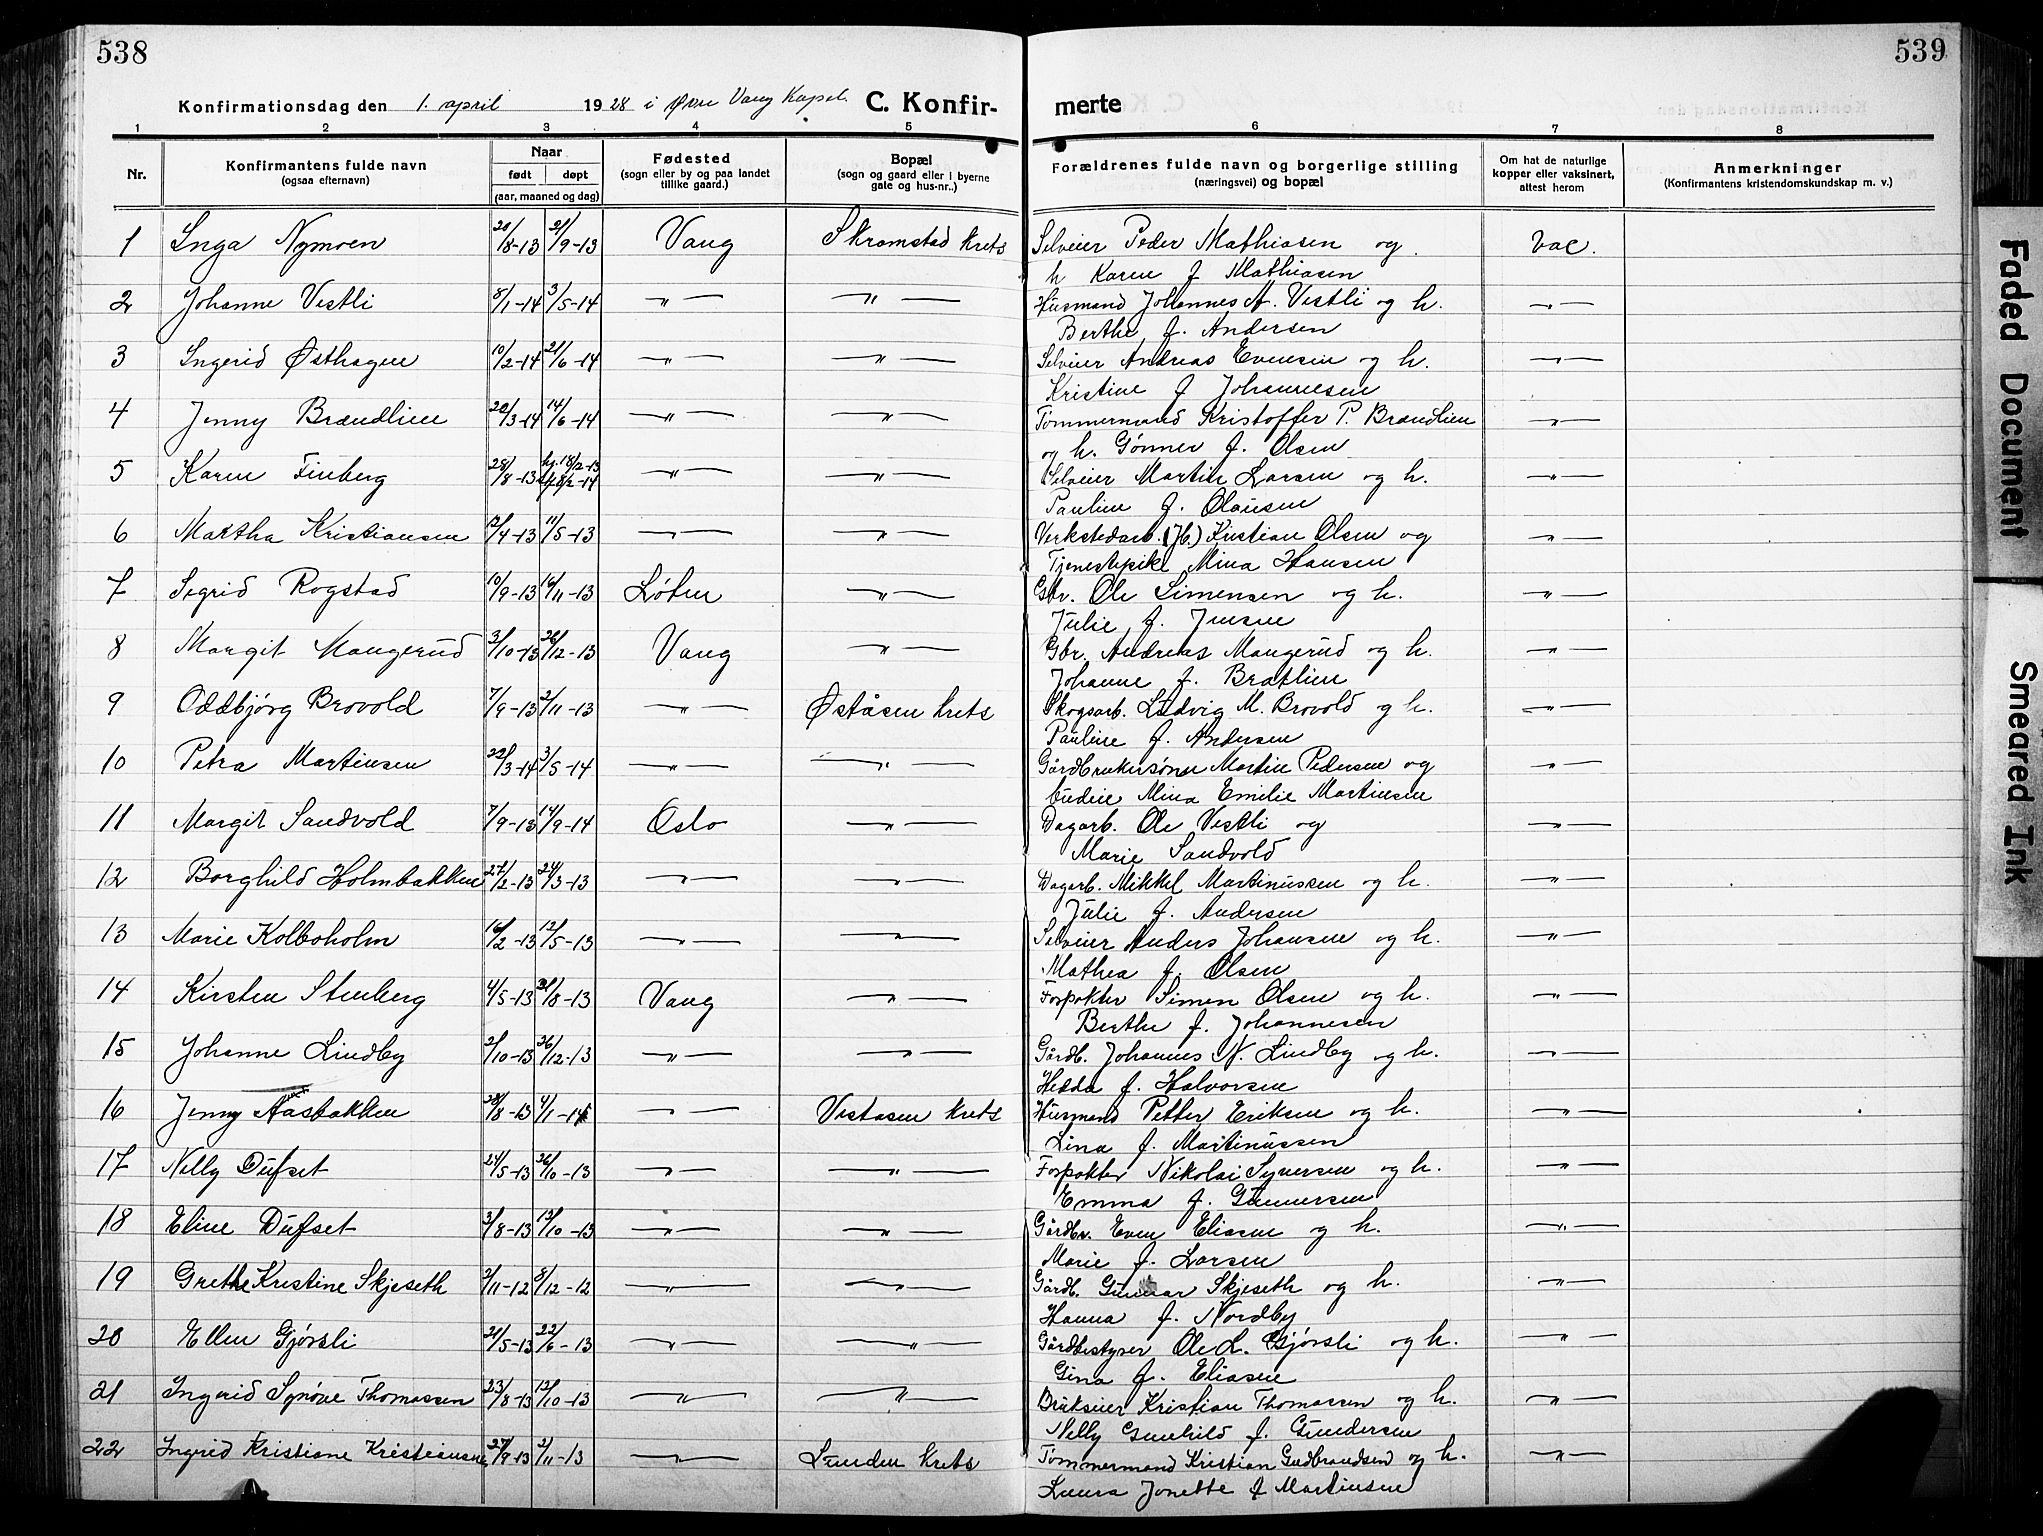 538
539
Konfirmationsdag den 1. april 1928 i Øvre Vang Kapel. C. Konfir-
merte
1 2 3 4 5 6 7 8
Nr. Konfirmantens fulde navn (ogsaa efternavn) Naar født døpt (aar, maaned og dag) Fødested (sogn eller by og paa landet tillike gaard.) Bopæl (sogn og gaard eller i byerne gate og hus-nr..) Forældrenes fulde navn og borgerlige stilling (næringsvei) og bopæl Om hat de naturlige kopper eller vaksinert, attest herom Anmerkninger (Konfirmantens kristendomskundskap m. v.)
1 Inga Nymoen 20/8-13 21/9-13 Vang Skramstad krets Selveier Peder Mathiasen og vac.
h Karen f Mathiasen
2 Johanne Vestli 8/1-14 3/5-14 " " Husmand Johannes A. Vestli og h. "
Berthe f. Andersen
3 Ingerid Østhagen 10/2-14 21/6-14 " " Selveier Andreas Evensen og h. "
Kristine f Johannesen
4 Jenny Brændlien 20/3-14 14/6-14 " " Tømmermand Kristoffer P. Brændlien "
og h. Gønner f. Olsen
5 Karen Finberg 28/8-13 hj. 18/2-13 8/2-14 " " Selveier Martin Larsen og h. "
Pauline f. Olausen
6 Martha Kristiansen 12/4-13 11/5-13 " " Verkstedarb. Kristian Olsen og "
Tjenestepike Mina Hansen
7 Sigrid Rogstad 10/9-13 16/11-13 Løten " Gbr. Ole Simensen og h. "
Julie f. Jensen
8 Margit Maugerud 3/10-13 26/12-13 Vang " Gbr. Andreas Maugerud og h. "
Johanne f. Bratlien
9 Oddbjørg Brovold 7/9-13 2/11-13 " Øståsen krets Skogsarb. Ludvig M. Brovold og h. "
Pauline f. Andersen
10 Petra Martinsen 22/3-14 3/5-14 " " Gårdbrukersønn Martin Pedersen og "
budeie Mina Emilie Martinsen
11 Margit Sandvold 7/9-13 14/9-14 Oslo " Dagarb. Ole Vestli og "
Marie Sandvold
12 Borghild Holmbakken 27/2-13 24/3-13 " " Dagarb. Mikkel Martinussen og h. "
Julie f. Andersen
13 Marie Kolboholm 16/2-13 12/5-13 " " Selveier Anders Johansen og h. "
Mathea f. Olsen
14 Kirsten Stenberg 4/5-13 31/8-13 Vang " Forpakter Simen Olsen og h. "
Berthe f. Johannesen
15 Johanne Lindby 2/10-13 26/12-13 " " Gårdb. Johannes N. Lindby og h. "
Hedda f. Halvorsen
16 Jenny Aasbakken 28/8-13 4/1-14 " Veståsen krets Husmand Petter Eriksen og h. "
Lina f. Martinussen
17 Nelly Dufset 24/5-13 26/10-13 " " Forpakter Nikolai Syversen og h. "
Emma f. Gunnersen
18 Eline Dufset 3/8-13 13/10-13 " " Gårdbr. Even Eliasen og h. "
Marie f. Larsen
19 Grethe Kristine Skjeseth 2/11-12 8/12-12 " " Gårdb. Gunnar Skjeseth og h. "
Hanna f. Nordby
20 Ellen Gjørsli 21/5-13 22/6-13 " " Gårdbestyrer Ole L. Gjørsli og h. "
Gina f. Eliasen
21 Ingerid Synøve Thomassen 23/8-13 12/10-13 " " Brukseier Kristian Thomassen og h. "
Nelly Gunhild f. Gundersen
22 Ingerid Kristiane Kristiansen 27/9-13 2/11-13 " Lunden krets Tømmermand Kristian Gudbrandsen og h. "
Laura Jonette f Martinsen
Faded Document
Smeared Ink